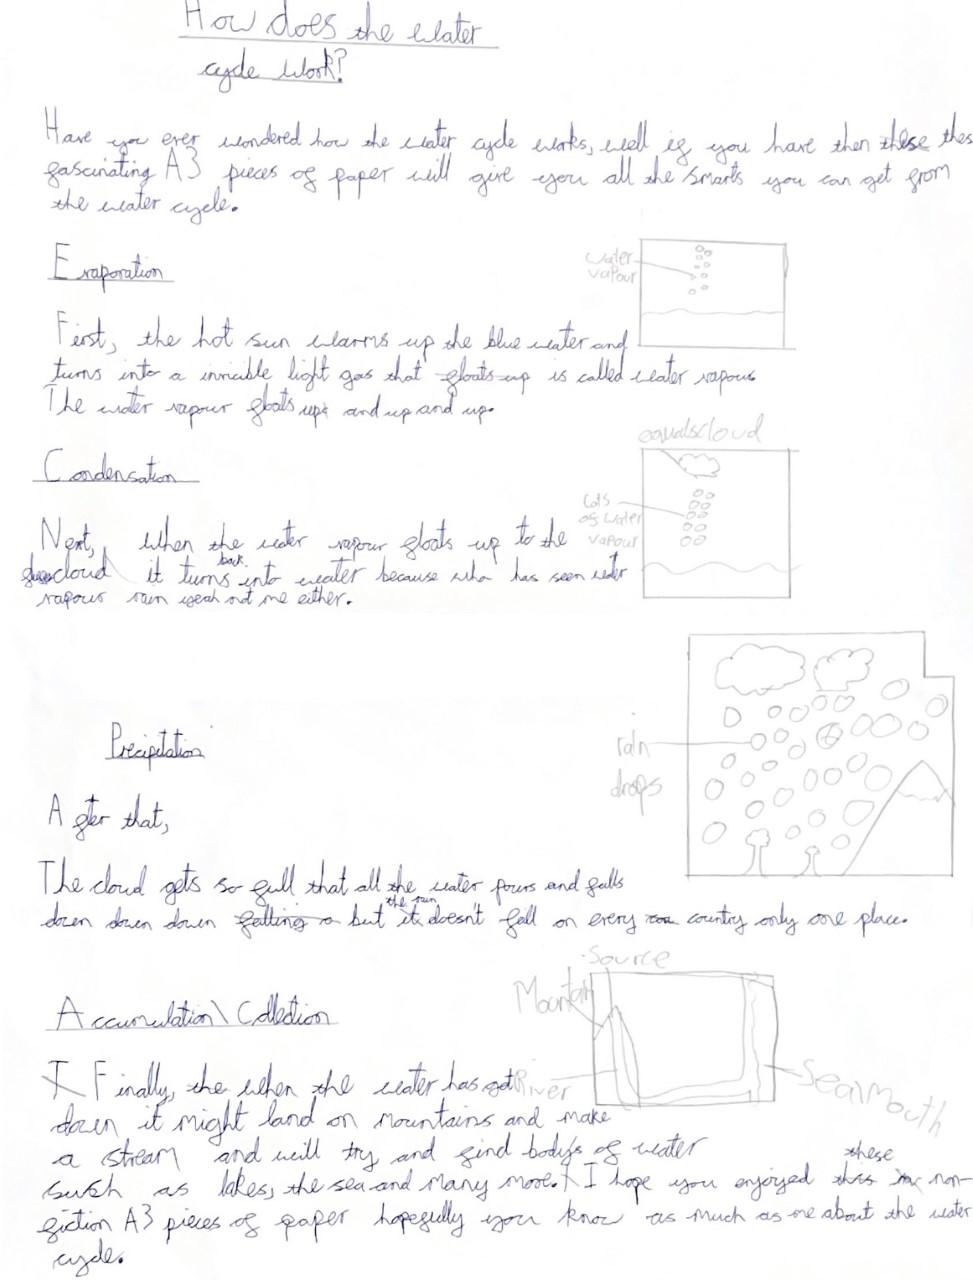 How does the water
cycle work?
Have you ever wondered how the water cycle works, well if you have then these thes
fascinating A3 pieces of paper will give you all the smarts you can get from
the water cycle.
Evaporation
water
vapour
First, the hot sun warms up the blue water and
turns into a invicible light gas that floats up is called water vapour
The water vapour floats up and up and up.
equalscloud
Condensation
Lots
of water
vapour
Next, when the water vapour floats up to the
cloud it turns back into water because who has seen water
vapour rain yeah not me either.
Precipitation
rain
drops
After that,
The cloud gets so full that all the water pours and falls
down down down falling but it the rain doesn't fall on every country only one place.
Source
Mountain
Accumulation\ Collection
River
Sea
Mouth
I Finally, the when the water has got
down it might land on mountains and make
a stream and will try and find bodys of water
such as lakes, the sea and many more. I hope you enjoyed this these non-
fiction A3 pieces of paper hopefully you know as much as me about the water
cycle.